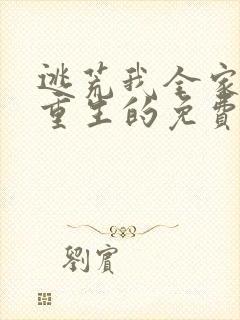 逃荒我全家
重生的免費
劉賓